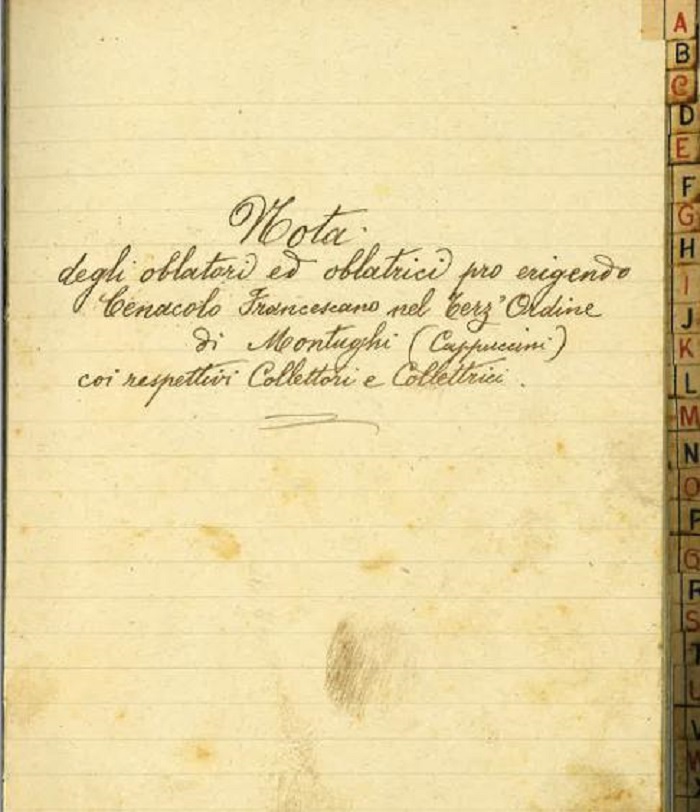 Nota
degli oblatori ed oblatrici pro erigendo
Cenacolo Francescano nel Terz'Ordine
di Montughi (Cappuccini)
coi respettivi Collettori e Collettrici.
A
B
C
D
E
F
G
H
I
J
K
L
M
N
O
P
Q
R
S
T
U
V
W